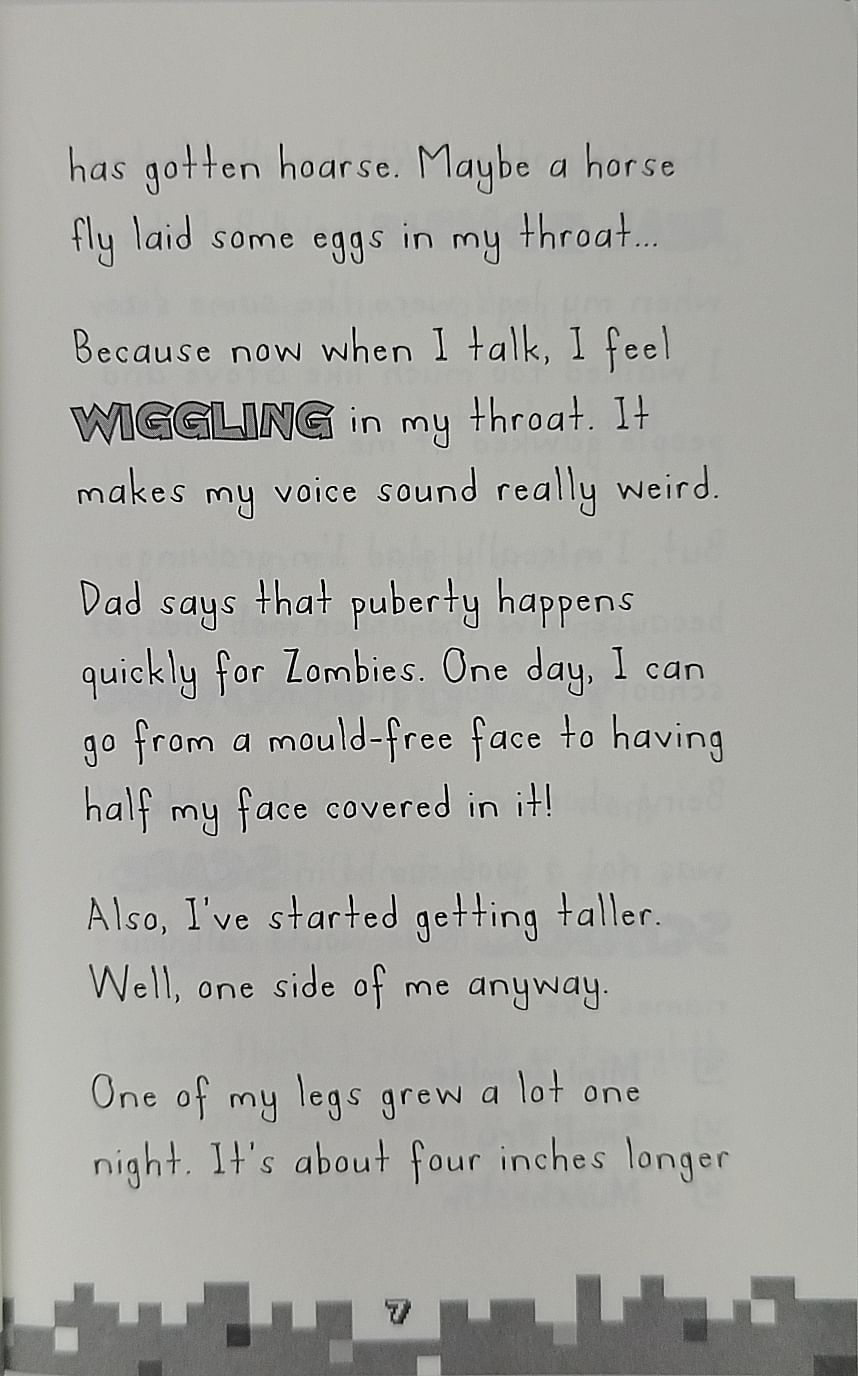 has gotten hoarse. Maybe a horse
fly laid some eggs in my throat...
Because now when I talk, I feel
WIGGLING in my throat. It
makes my voice sound really weird.
Dad says that puberty happens
quickly for Zombies. One day, I can
go from a mould-free face to having
half my face covered in it!
Also, I've started getting taller.
Well, one side of me anyway.
One of my legs grew a lot one
night. It's about four inches longer
7